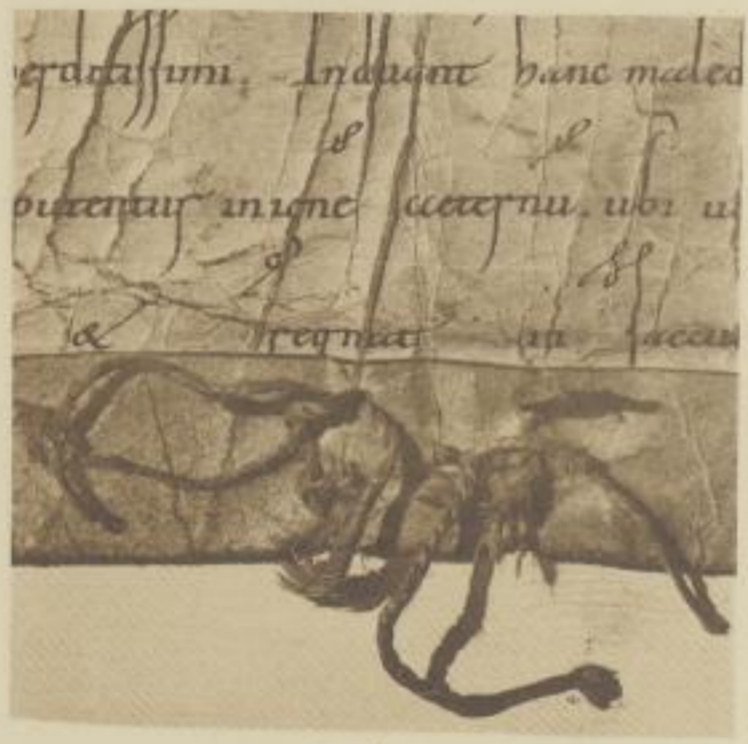 perditissimi. Induant hanc maled
burentur in igne aeterno. ubi u
& regnat in saecu